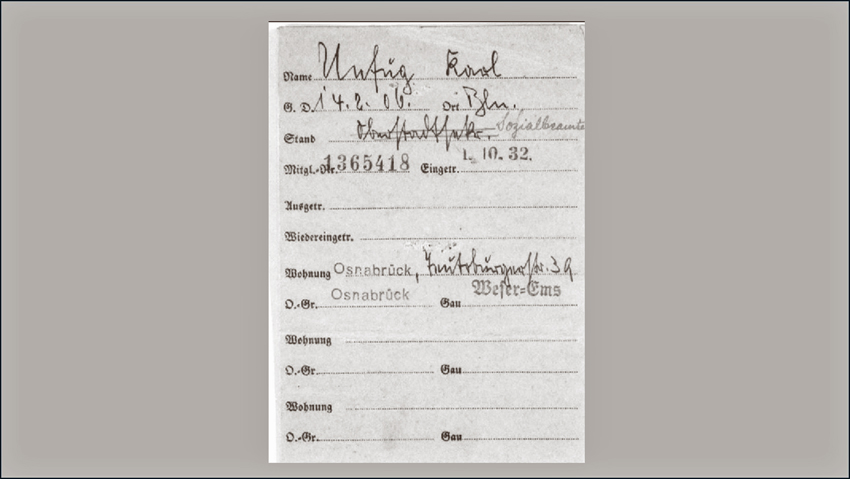 Name Unfug Karl
G. D. 14.2.06. Ort Bln.
Stand Oberstadtsekr. Sozialbeamte
Mitgl.-Nr. 1365418 Eingetr. 1. 10. 32.
Ausgetr.
Wiedereingetr.
Wohnung Osnabrück, Teutoburgerstr. 39
O.-Gr. Osnabrück Gau Weser-Ems
Wohnung
O.-Gr. Gau
Wohnung
O.-Gr. Gau